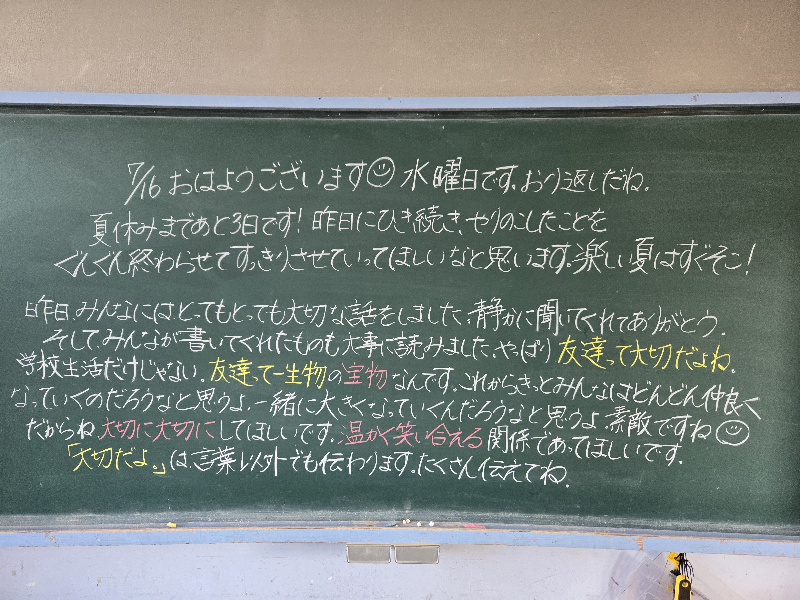 7/16 おはようございます☺ 水曜日です。おり返しだね。
夏休みまであと3日です！昨日にひき続き、やりのこしたことを
ぐんぐん終わらせてすっきりさせていってほしいなと思います。楽しい夏はすぐそこ！
昨日、みんなにはとってもとっても大切な話をしました。静かに聞いてくれてありがとう。
そして、みんなが書いてくれたものも大事に読みました。やっぱり友達って大切だよね。
学校生活だけじゃない。友達って一生物の宝物なんです。これからきっとみんなはどんどん仲良く
なっていくのだろうなと思うよ。一緒に大きくなっていくんだろうなと思うよ。素敵ですね☺
だからね、大切に大切にしてほしいです。温かく笑い合える関係であってほしいです。
「大切だよ。」は、言葉以外でも伝わります。たくさん伝えてね。